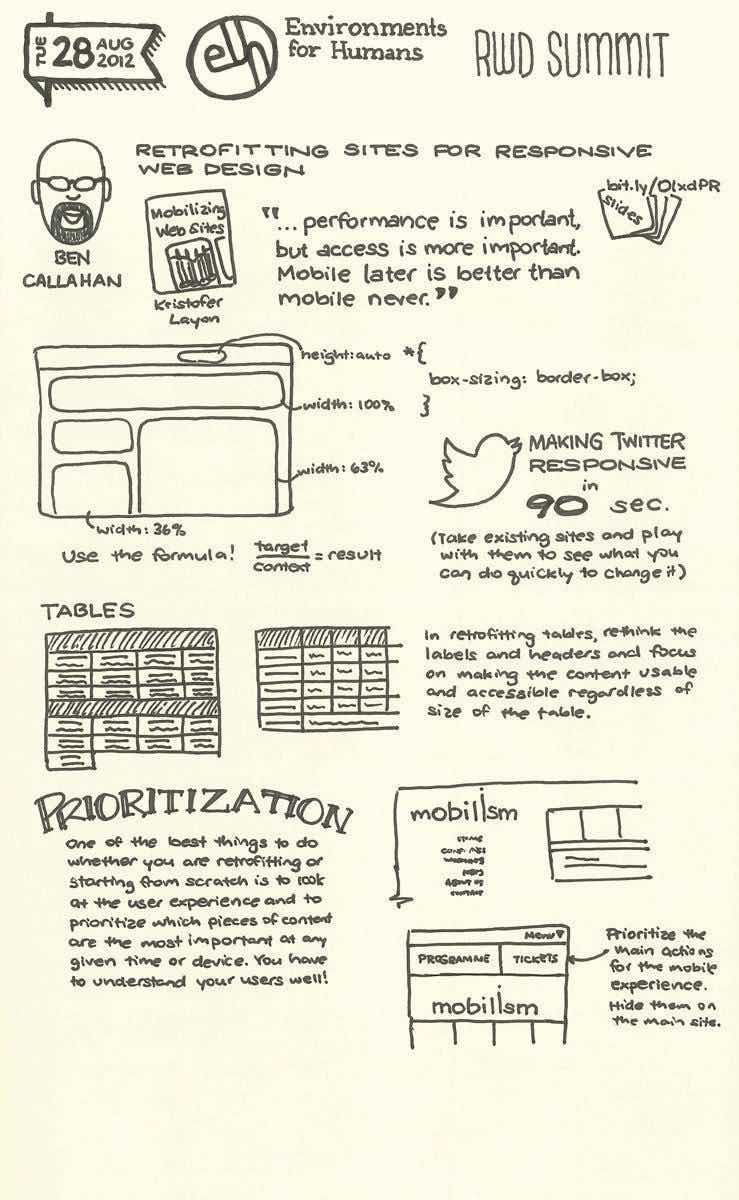 TUE 28 AUG 2012
efh
Environments
for Humans
RWD SUMMIT
RETROFITTING SITES FOR RESPONSIVE
WEB DESIGN
BEN
CALLAHAN
Mobilizing
Web Sites
Kristofer
Layon
"... performance is important,
but access is more important.
Mobile later is better than
mobile never."
bit.ly/OlxdPR
slides
height:auto
width: 100%
width: 63%
width: 36%
*{
box-sizing: border-box;
}
Use the formula! target/context = result
MAKING TWITTER
RESPONSIVE
in
90 sec.
(Take existing sites and play
with them to see what you
can do quickly to change it)
TABLES
In retrofitting tables, rethink the
labels and headers and focus
on making the content usable
and accessible regardless of
size of the table.
PRIORITIZATION
One of the best things to do
whether you are retrofitting or
starting from scratch is to look
at the user experience and to
prioritize which pieces of content
are the most important at any
given time or device. You have
to understand your users well!
mobilism
HOME
ABOUT US
CONTACT
Menu▼
PROGRAMME
TICKETS
mobilism
Prioritize the
main actions
for the mobile
experience.
Hide them on
the main site.